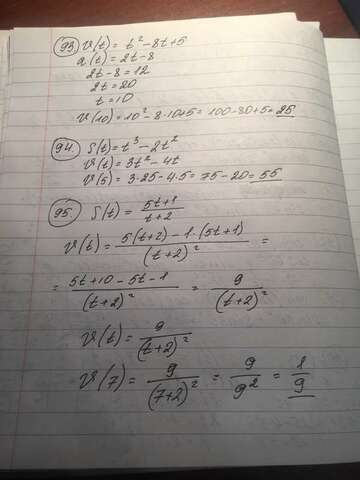 93. v(t) = t² - 8t + 5
a(t) = 2t - 8
2t - 8 = 12
2t = 20
t = 10
v(10) = 10² - 8·10+5 = 100 - 80 + 5 = 25
94. S(t) = t³ - 2t²
v(t) = 3t² - 4t
v(5) = 3·25 - 4·5 = 75 - 20 = 55
95. S(t) = (5t+1)/(t+2)
v(t) = (5(t+2) - 1·(5t+1))/(t+2)² =
= (5t+10-5t-1)/(t+2)² = 9/(t+2)²
v(t) = 9/(t+2)²
v(7) = 9/(7+2)² = 9/9² = 1/9